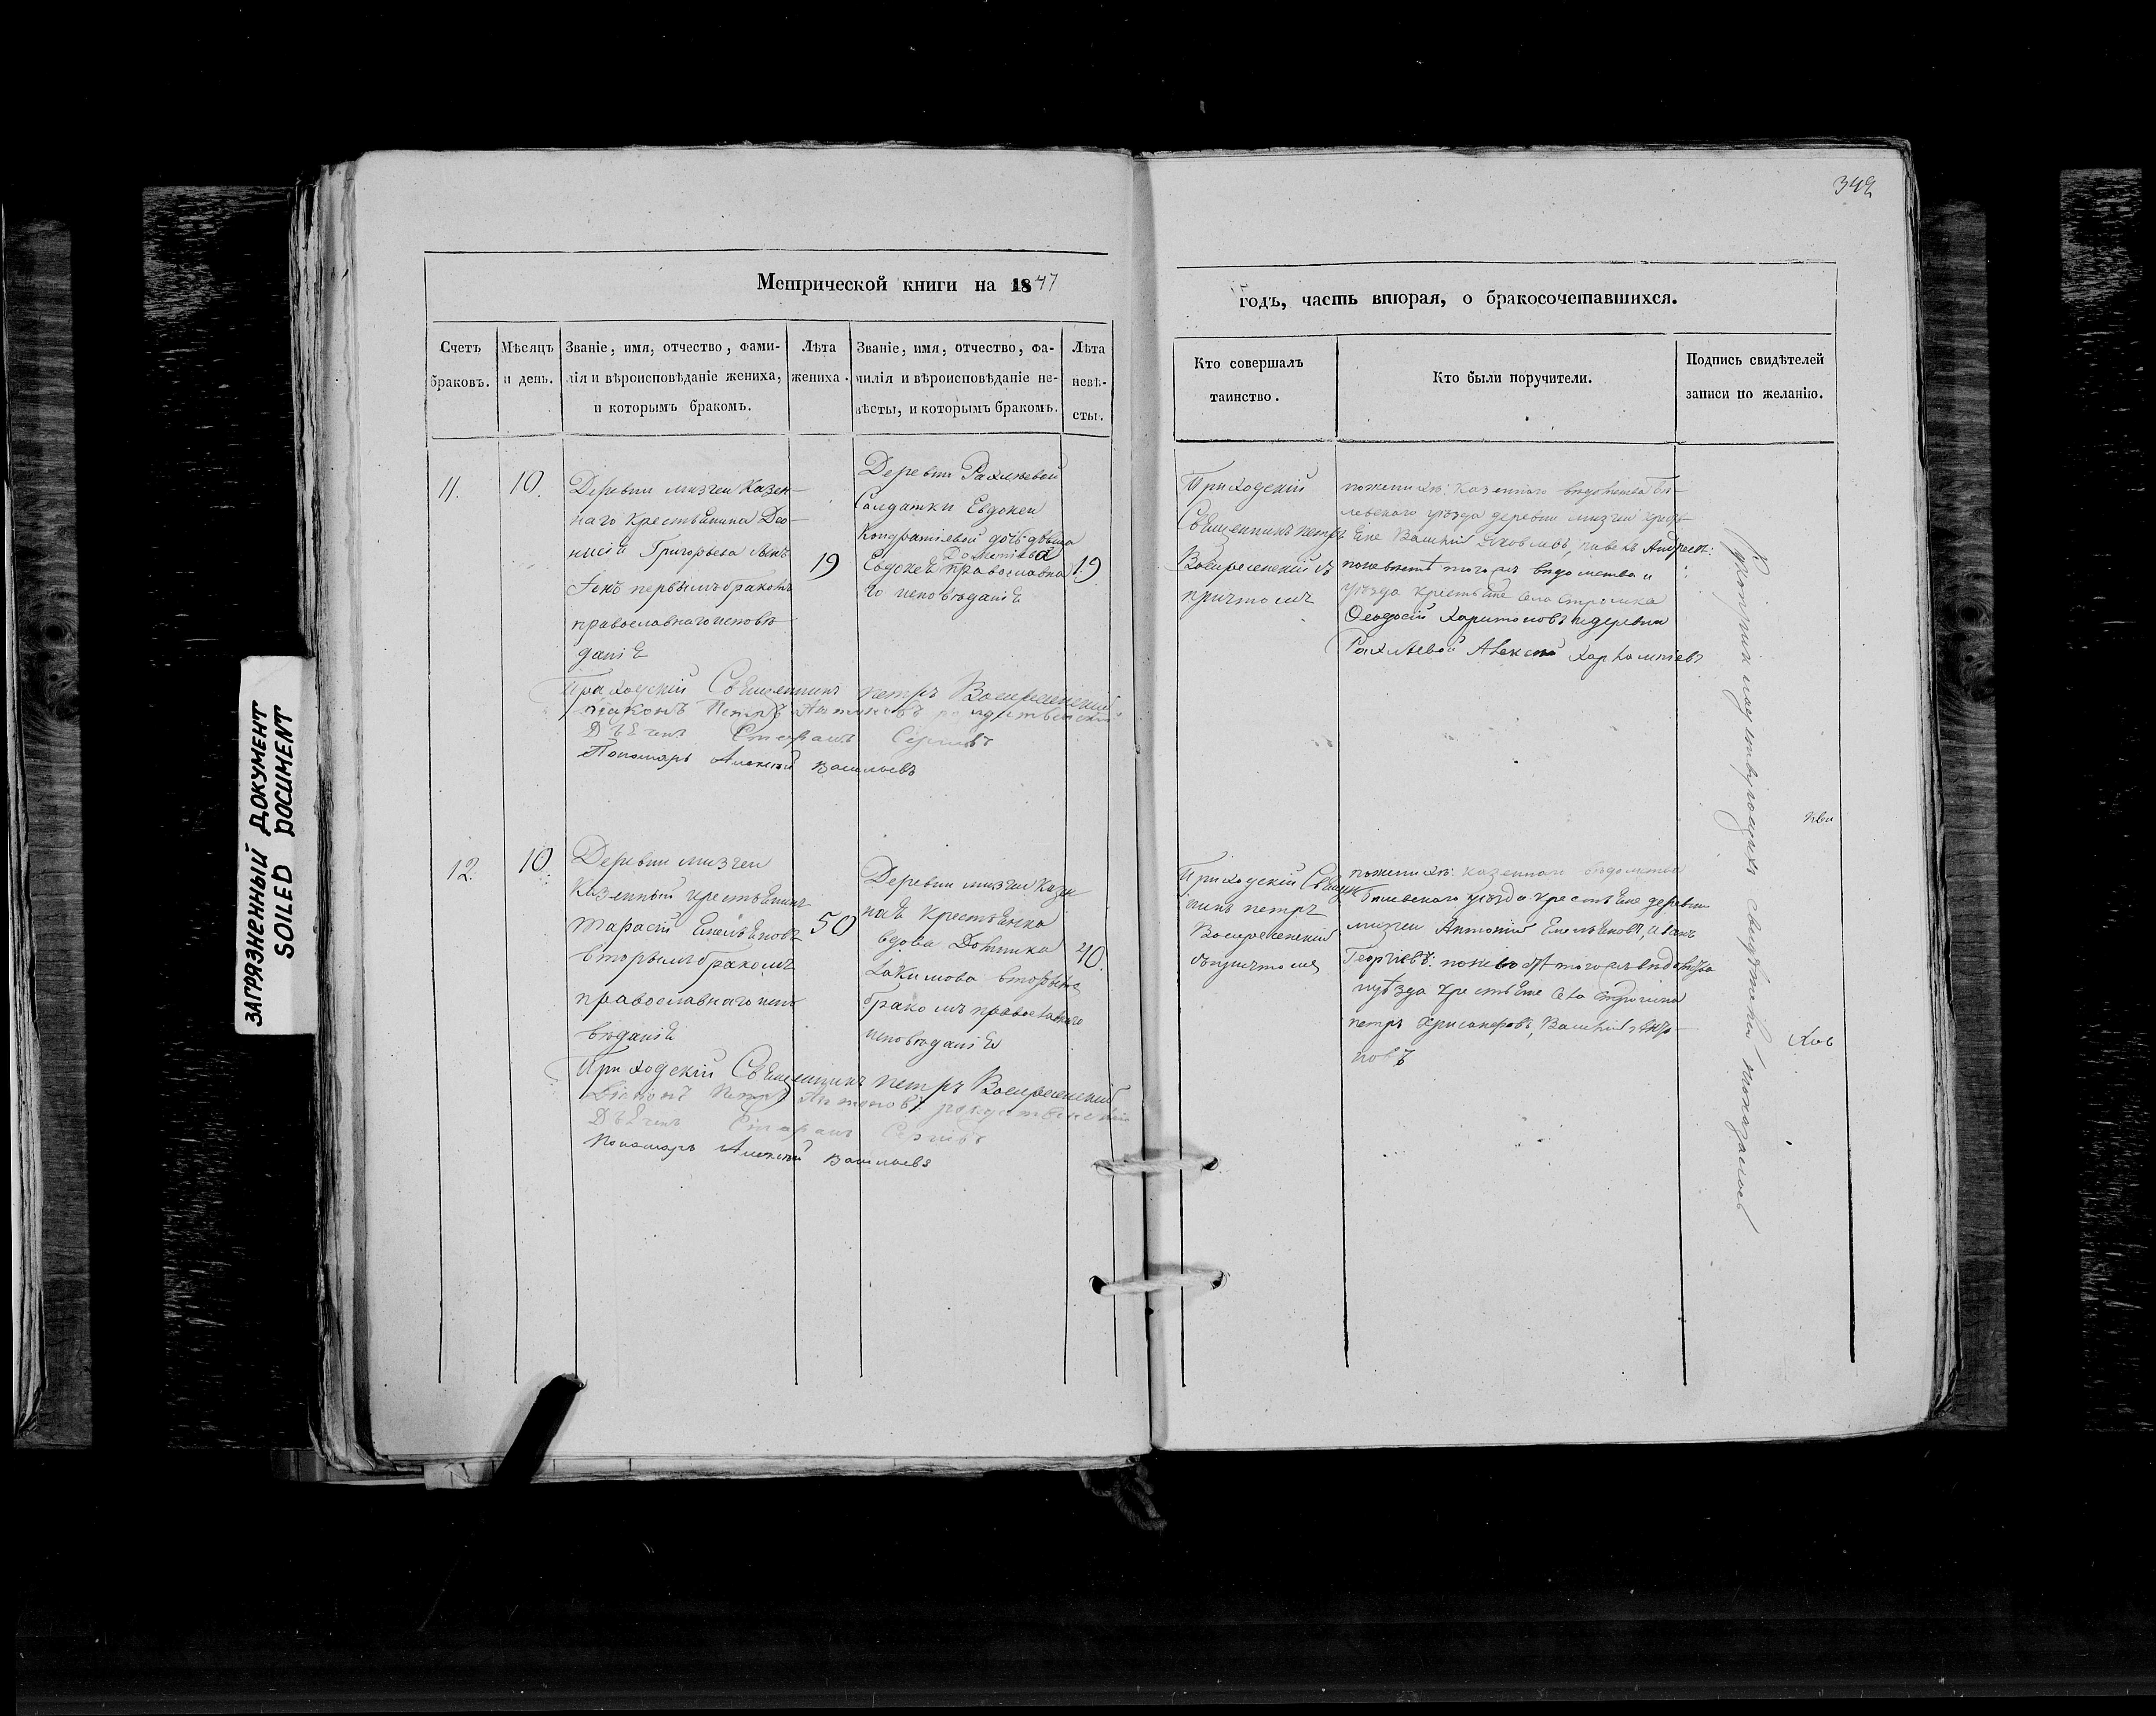 342
Метрической книги на 1847
годъ, часть вторая, о бракосочетавшихся.
Счетъ браковъ.
Мѣсяцъ и день.
Званіе, имя, отчество, фами-
лія и вѣроисповѣданіе жениха,
и которымъ бракомъ.
Лѣта
жениха.
Званіе, имя, отчество, фа-
милія и вѣроисповѣданіе не-
вѣсты, и которымъ бракомъ.
Лѣта
невѣ-
сты.
Кто совершалъ
таинство.
Кто были поручители.
Подпись свидѣтелей
записи по желанію.
11.
10.
Деревни мизгеи Казен-
наго Крестьянина Део-
нисія Григорьева сынъ
первымъ бракомъ
православнаго исповѣ
даніѧ
19
Деревни Рахлѣевой
Салдатки Евдокеи
Кондратіевой дочь дѣвица
Дометіева
Евдокеѧ православна
го исповѣданіѧ
19
Приходскій
Свѧщенникъ петръ
Воскресенскій съ
причтомъ
по женихѣ: казеннаго вѣдомства бѣ-
левскаго уѣзда деревни мизгеи крестъ
ѧне Василій Яковлевъ, павелъ Андреевъ:
по невѣстѣ того жъ вѣдомства и
уѣзда крестьѧне села
Феодосій Харитоновъ и деревни
Рахлѣевой Алексѣй Харлампіевъ
Приходскій Свѧщенникъ петръ Воскресенскій
Діаконъ Петръ Антоновъ рождественскій
Дьѧчекъ Стефанъ Сергіевъ
Пономарь Алексѣй Васильевъ
12.
10.
Деревни мизгеи
Казенный крестьѧнинъ
Тарасій Емельѧновъ
вторымъ бракомъ
православнаго испо
вѣданіѧ
50
Деревни мизгеи Казен
наѧ крестьѧнка
вдова Домника
Іакимова вторымъ
бракомъ православнаго
исповѣданіѧ
40.
Приходскій Свѧщен
никъ петръ
Воскресенскій
съ причтомъ
по женихѣ: казеннаго вѣдомства
бѣлевскаго уѣзда крестьѧне деревни
мизгеи Антоній Емельѧновъ, Иванъ
Георгіевъ: по невѣстѣ того жъ вѣдомства
и уѣзда крестьѧне села
петръ Хрисанфовъ, Василій
новъ
Приходскій Свѧщенникъ петръ Воскресенскій
Діаконъ Петръ Антоновъ рождественскій
Дьѧчекъ Стефанъ Сергіевъ
Пономарь Алексѣй Васильевъ
ЗАГРЯЗНЕННЫЙ ДОКУМЕНТ
SOILED DOCUMENT